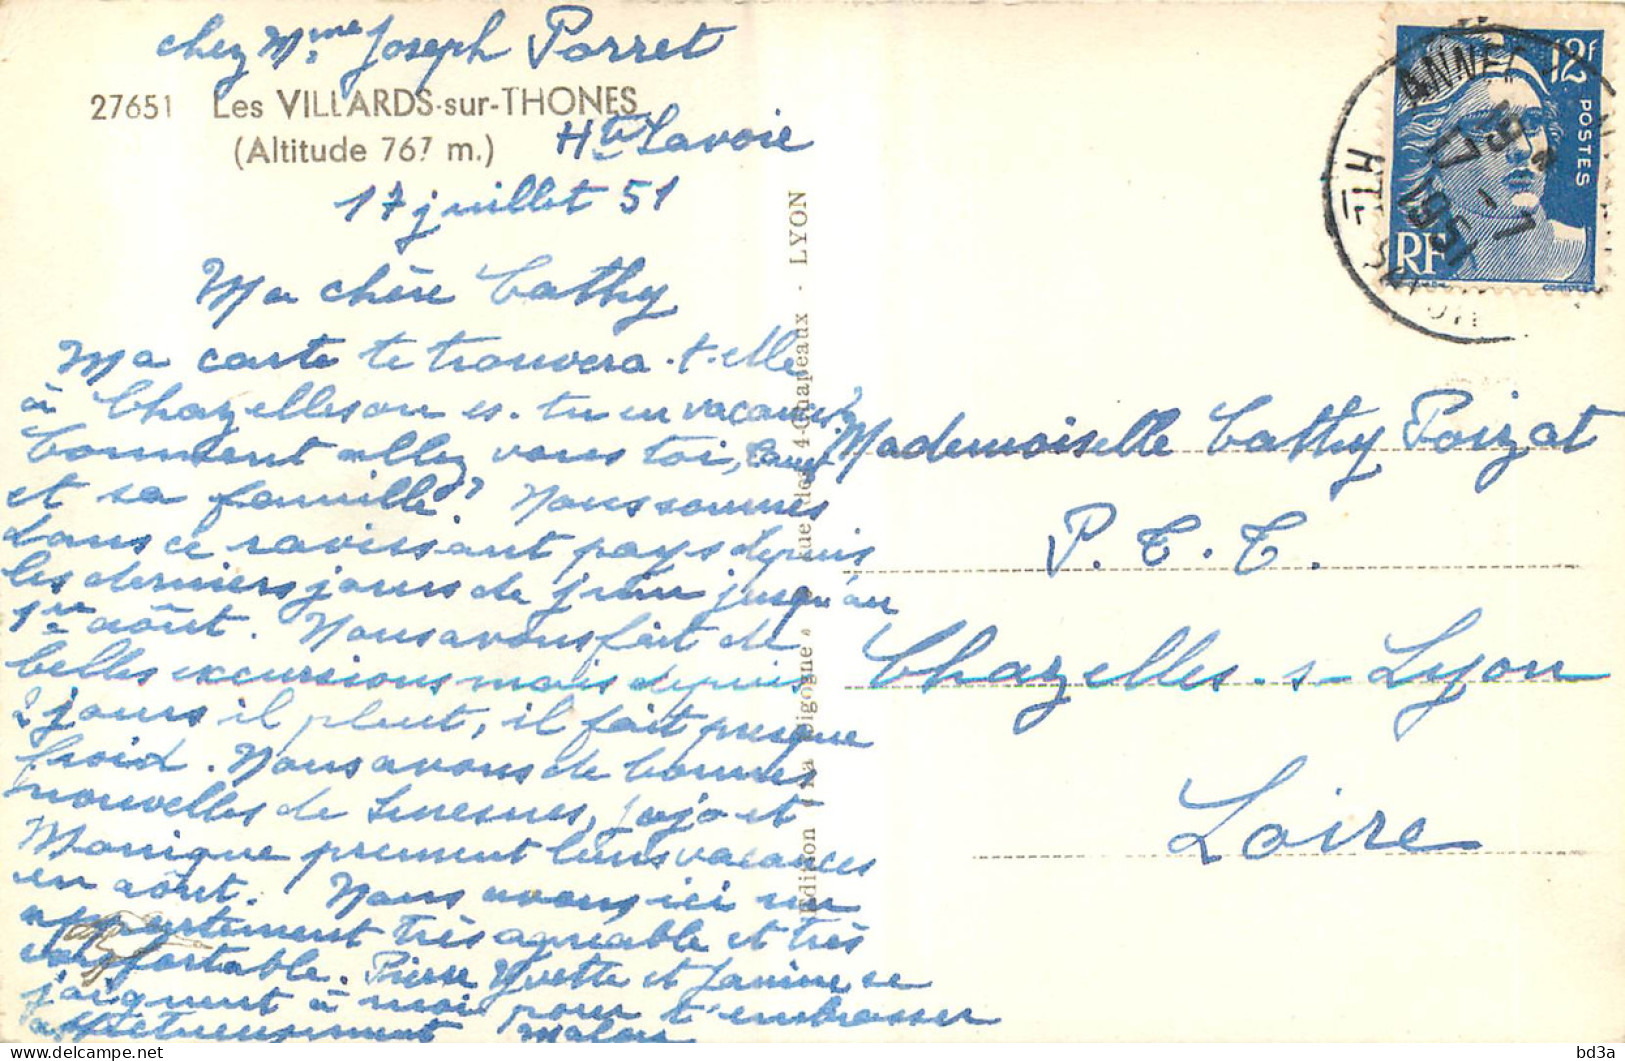 chez Mme Joseph Porret
27651 Les VILLARDS-sur-THONES
(Altitude 767 m.)
Hte Savoie
17 juillet 51
Ma chère Cathy
Ma carte te trouvera-t-elle
à Chazelles ou es-tu en vacances?
Comment allez vous toi,
et sa famille? Nous sommes
dans ce ravissant pays depuis
les derniers jours de juin jusqu'au
1er août. Nous avons fait de
belles excursions mais depuis
2 jours il pleut, il fait presque
froid. Nous avons de bonnes
nouvelles de Jojo et
Monique prennent leurs vacances
en août. Nous avons ici un
appartement très agréable et très
confortable. Pierre Yvette et Janine se
joignent à moi pour t'embrasser
affectueusement
Edition "La Cigogne" rue des 4-Chapeaux - LYON
12f
POSTES
RF
ANNECY
HTE SAVOIE
17 - 7
1951
Mademoiselle Cathy Poizat
P.T.T.
Chazelles-s-Lyon
Loire
bd3a